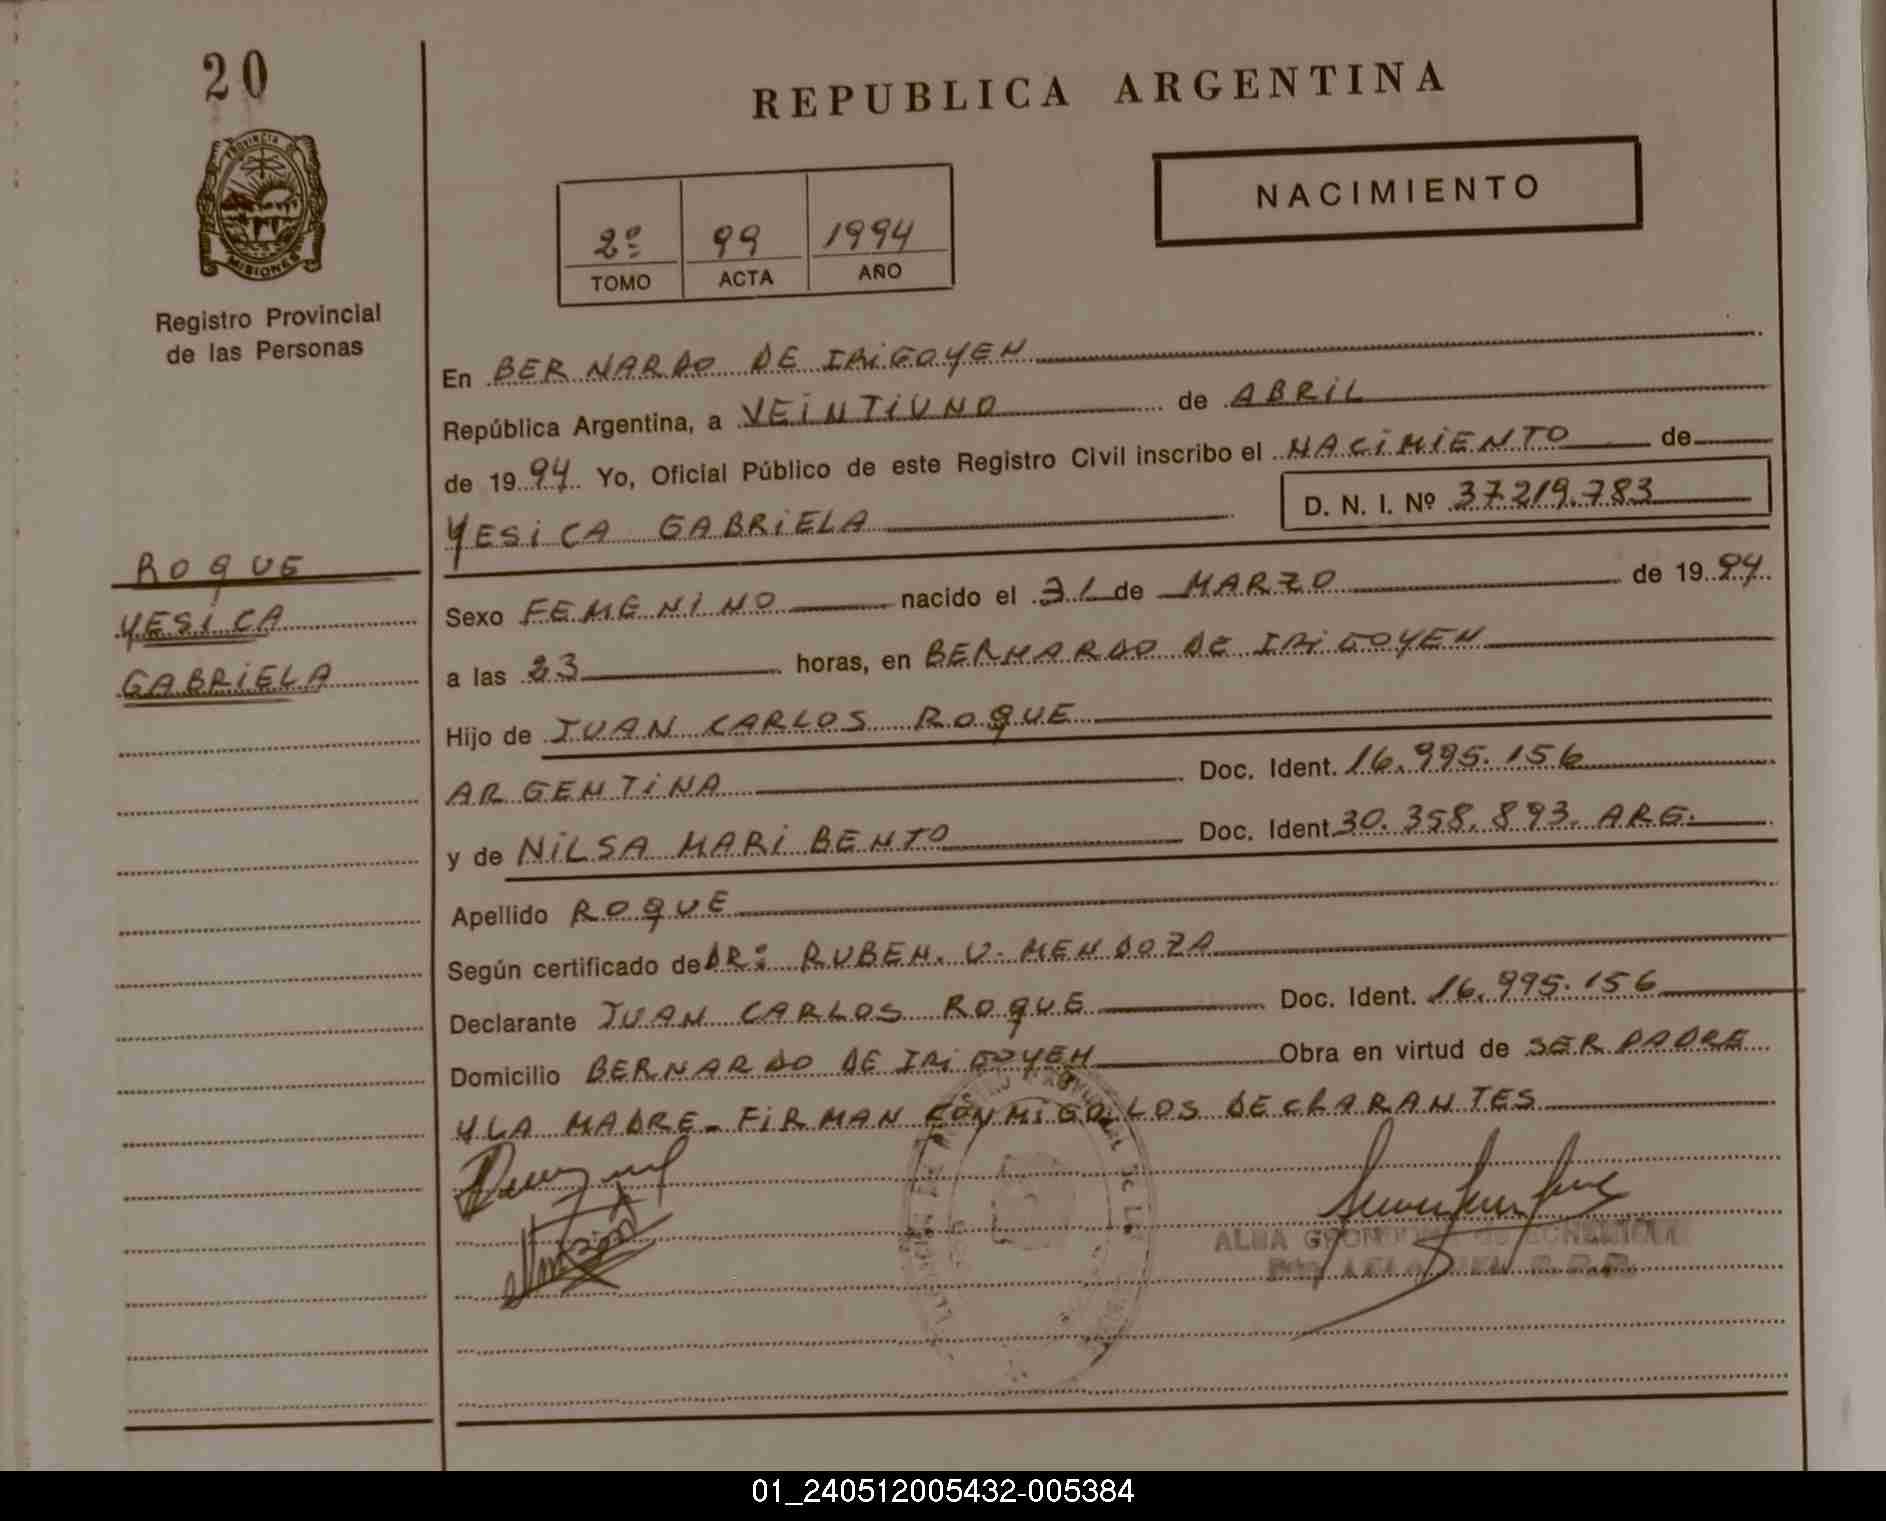 20
REPUBLICA ARGENTINA
PROVINCIA DE
MISIONES
Registro Provincial
de las Personas
2º 99 1994
TOMO ACTA AÑO
NACIMIENTO
En BERNARDO DE IRIGOYEN
República Argentina, a VEINTIUNO de ABRIL
de 1994 Yo, Oficial Público de este Registro Civil inscribo el NACIMIENTO de
YESICA GABRIELA D. N. I. Nº 37.219.783
ROQUE
YESICA
GABRIELA
Sexo FEMENINO nacido el 31 de MARZO de 1994
a las 23 horas, en BERNARDO DE IRIGOYEN
Hijo de JUAN CARLOS ROQUE
ARGENTINA Doc. Ident. 16.995.156
y de NILSA MARI BENTO Doc. Ident. 30.358.893. ARG.
Apellido ROQUE
Según certificado de DR: RUBEN. U. MENDOZA
Declarante JUAN CARLOS ROQUE Doc. Ident. 16.995.156
Domicilio BERNARDO DE IRIGOYEN Obra en virtud de SER PADRE
Y LA MADRE - FIRMAN CONMIGO LOS DECLARANTES
ALBA
01_240512005432-005384